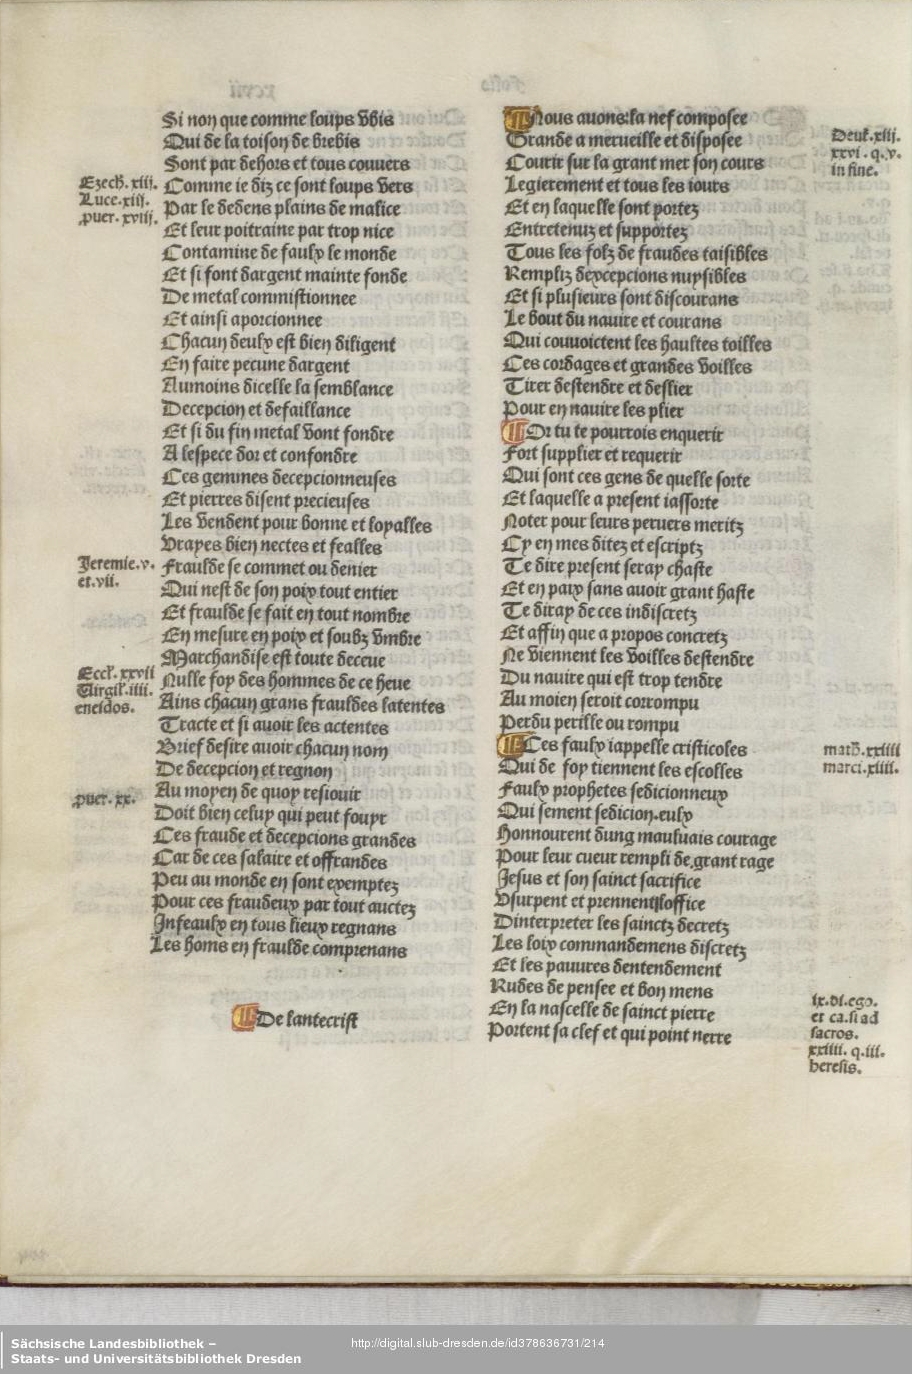 Si non que comme loups vbis
Qui de la toison de brebis
Sont par dehors et tous couuers
Ezech. xiij.
Luce. xij.
puer. xviij.
Comme ie diz ce sont loups vers
Par le dedens plains de malice
Et leur poitraine par trop nice
Contamine de faulx le monde
Et si font dargent mainte fonde
De metal commistionnee
Et ainsi aporcionnee
Chacun deulx est bien diligent
En faire pecune dargent
Aumoins dicelle la semblance
Decepcion et defaillance
Et si du fin metal vont fondre
A lespece dor et confondre
Ces gemmes decepcionneuses
Et pierres disent precieuses
Les vendent pour bonne et loyalles
Vrayes bien nectes et fealles
Jeremie. v.
et. vii.
Fraulde se commet ou denier
Qui nest de son poix tout entier
Et fraulde se fait en tout nombre
En mesure en poix et soubz vmbre
Marchandise est toute deceue
Eccl. xxvii
Virgil. iiii.
eneidos.
Nulle foy des hommes de ce heue
Ains chacun grans frauldes latentes
Tracte et si auoir les actentes
Brief desire auoir chacun nom
De decepcion et regnon
puer. xx.
Au moyen de quoy resiouir
Doit bien celuy qui peut fouyr
Ces fraude et decepcions grandes
Car de ces salaire et offrandes
Peu au monde en sont exemptez
Pour ces fraudeux par tout auctez
Infeaulx en tous lieux regnans
Les homs en fraulde comprenans
De lantecrist
Nous auons la nef composee
Grande a merueille et disposee
Deut. xiij.
xxvi. q. v.
in fine.
Courir sur la grant mer son cours
Legierement et tous les iours
Et en laquelle sont portez
Entretenuz et supportez
Tous les folz de fraudes taisibles
Rempliz dexcepcions nuysibles
Et si plusieurs sont discourans
Le bout du nauire et courans
Qui couuoictent les haultes toilles
Ces cordages et grandes voilles
Tirer destendre et deslier
Pour en nauire les plier
Or tu te pourrois enquerir
Fort supplier et requerir
Qui sont ces gens de quelle sorte
Et laquelle a present iassorte
Noter pour leurs peruers meritz
Cy en mes ditez et escriptz
Te dire present seray chaste
Et en paix sans auoir grant haste
Te diray de ces indiscretz
Et affin que a propos concretz
Ne viennent les voilles destendre
Du nauire qui est trop tendre
Au moien seroit corrompu
Perdu perille ou rompu
math. xxiiii
marci. xiiii.
Ces faulx iappelle cristicoles
Qui de foy tiennent les escolles
Faulx prophetes sedicionneux
Qui sement sedicion. eulx
Honnourent dung mauluais courage
Pour leur cueur rempli de, grant rage
Jesus et son sainct sacrifice
Vsurpent et prennent loffice
Dinterpreter les sainctz decretz
Les loix commandemens discretz
Et les pauures dentendement
Rudes de pensee et bon mens
ix. di. ego.
et ca. si ad
sacros.
xxiiii. q. iii.
heresis.
En la nascelle de sainct pierre
Portent sa clef et qui point nerre
Sächsische Landesbibliothek –
Staats- und Universitätsbibliothek Dresden
http://digital.slub-dresden.de/id378636731/214